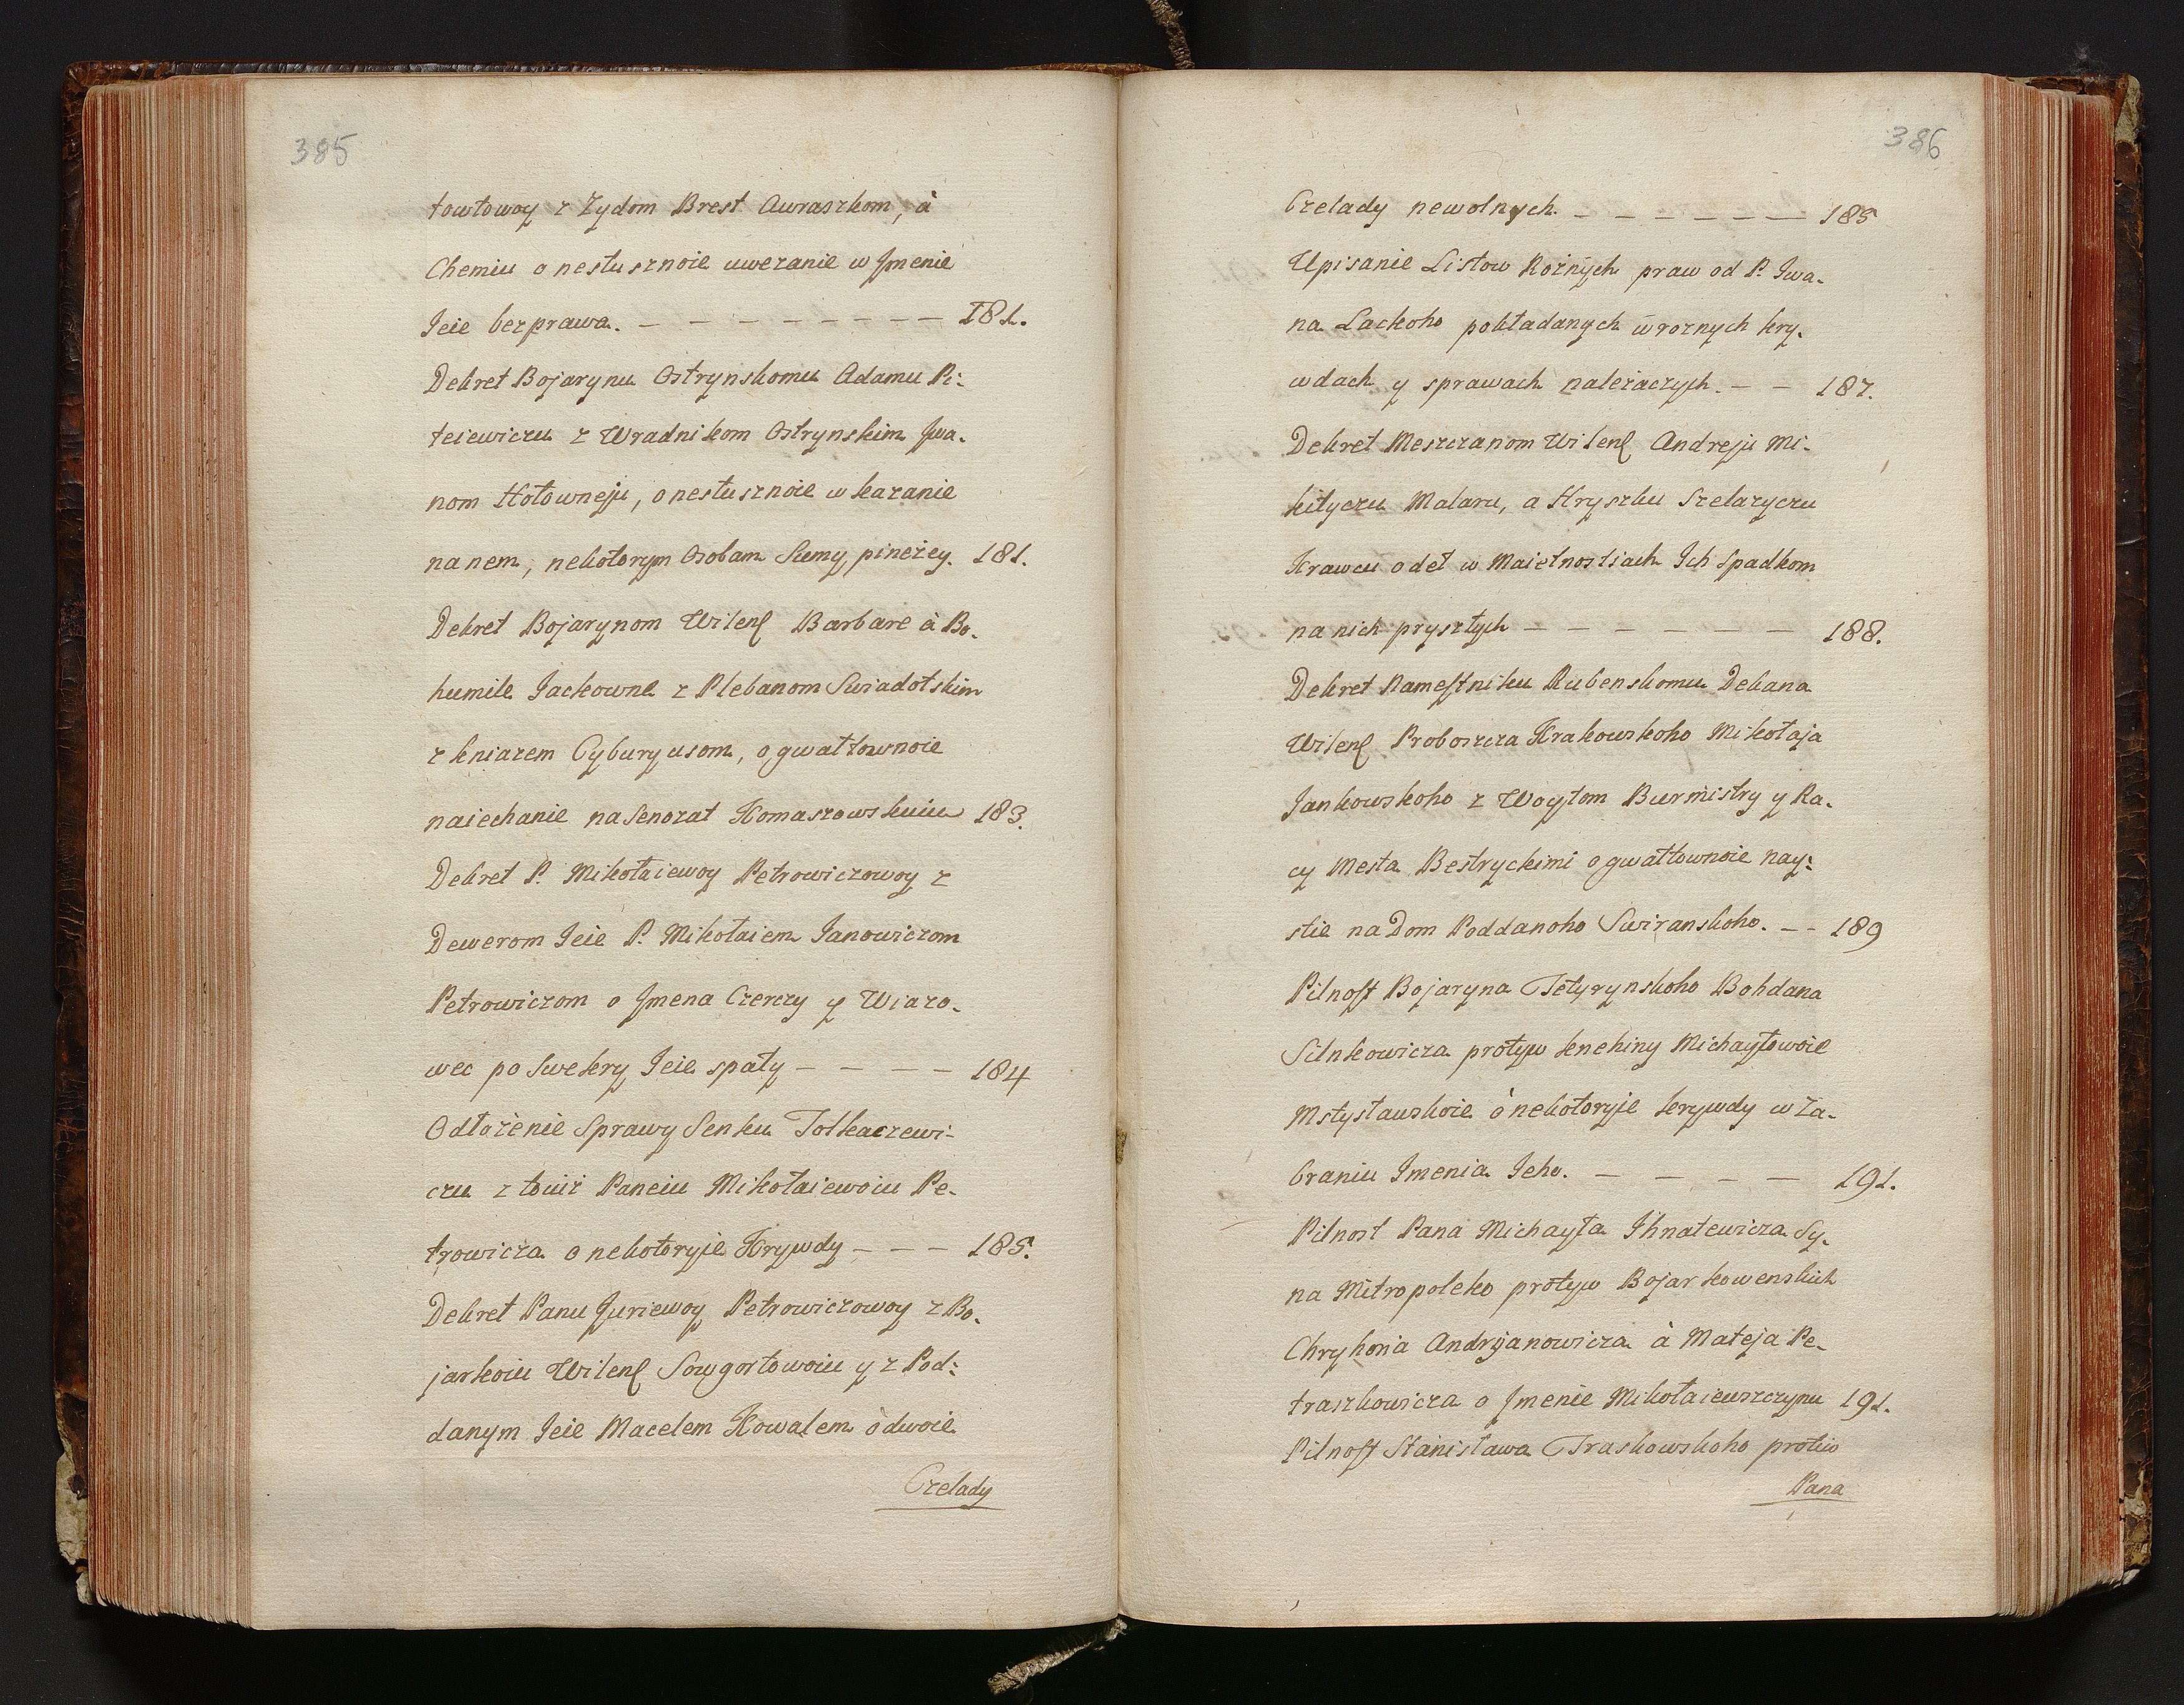 385
towtowoy z Zydom Brest Awraszkom, à
Chemiu o nesłusznoie uwezanie w Jmenie
Jeie bez prawa. – – – – – – – – – 181.
Dekret Bojarynu Ostrynskomu Adamu Pi-
teiewiczu z Wradnikom Ostrynskim Jwa-
nom Hołowneju, o nesłusznoie wkazanie
na nem, nekotorym Osobam Sumy pineżey. 181.
Dekret Bojarynom Wilenſ Barbare à Bo-
humile Jackowne z Plebanom Swiadotskim
z kniazem Cyburyusom, o gwałtownoie
naiechanie na Senozat Komaszowskuiu 183.
Dekret P. Mikołaiewoy Petrowiczowoy z
Dewerom Jeie P. Mikołaiem Janowiczom
Petrowiczom o Jmena Czerczy y Wiazo-
wec po Swekry Jeie spały – – – – 184
Odłożenie Sprawy Senku Tolkaczewi-
czu z touiż Paneiu Mikołaiewoiu Pe-
trowicza o nekotoryie Krywdy – – – 185.
Dekret Panu Juriewoy Petrowiczowoy z Bo-
jarkoiu Wilenſ Sowgortowoiu y z Pod-
danym Jeie Macelem Kowalem o dwoie
Czelady
386
Czelady newolnych. – – – – – – – 185
Upisanie Listow Rożnych praw od P. Jwa-
na Lackoho pokładanych w roznych kry-
wdach y sprawach należaczych. – – 187.
Dekret Meszczanom Wilenſ Andreju Mi-
kityczu Malaru, a Hryszku Szelazyczu
Krawcu o deł w Maietnostiach Jch Spadkom
na nich pryszłych – – – – – – – 188.
Dekret Nameſtniku Rubenskomu Dekana
Wilenſ Proboszcza Krakowskoho Mikołaja
Jankowskoho z Woytom Burmistry y Ra-
cy Mesta Bestryckimi o gwałtownoie nay-
stie na Dom Poddanoho Swiranskoho. – – 189
Pilnoſt Bojaryna Tetyrynskoho Bohdana
Silnkowicza protyw knehiny Michayłowoie
Mstysławskoie o nekotoryie krywdy w Za-
braniu Jmenia Jeho. – – – – – 191.
Pilnost Pana Michayła Jhnatewicza Sy-
na Mitropoleko protyw Bojar kowenskich
Chryhona Andryanowicza à Mateja Pe-
traszkowicza o Jmenie Mikołaiewszczynu 191.
Pilnoſt Stanisława Traskowskoho protiw
Pana